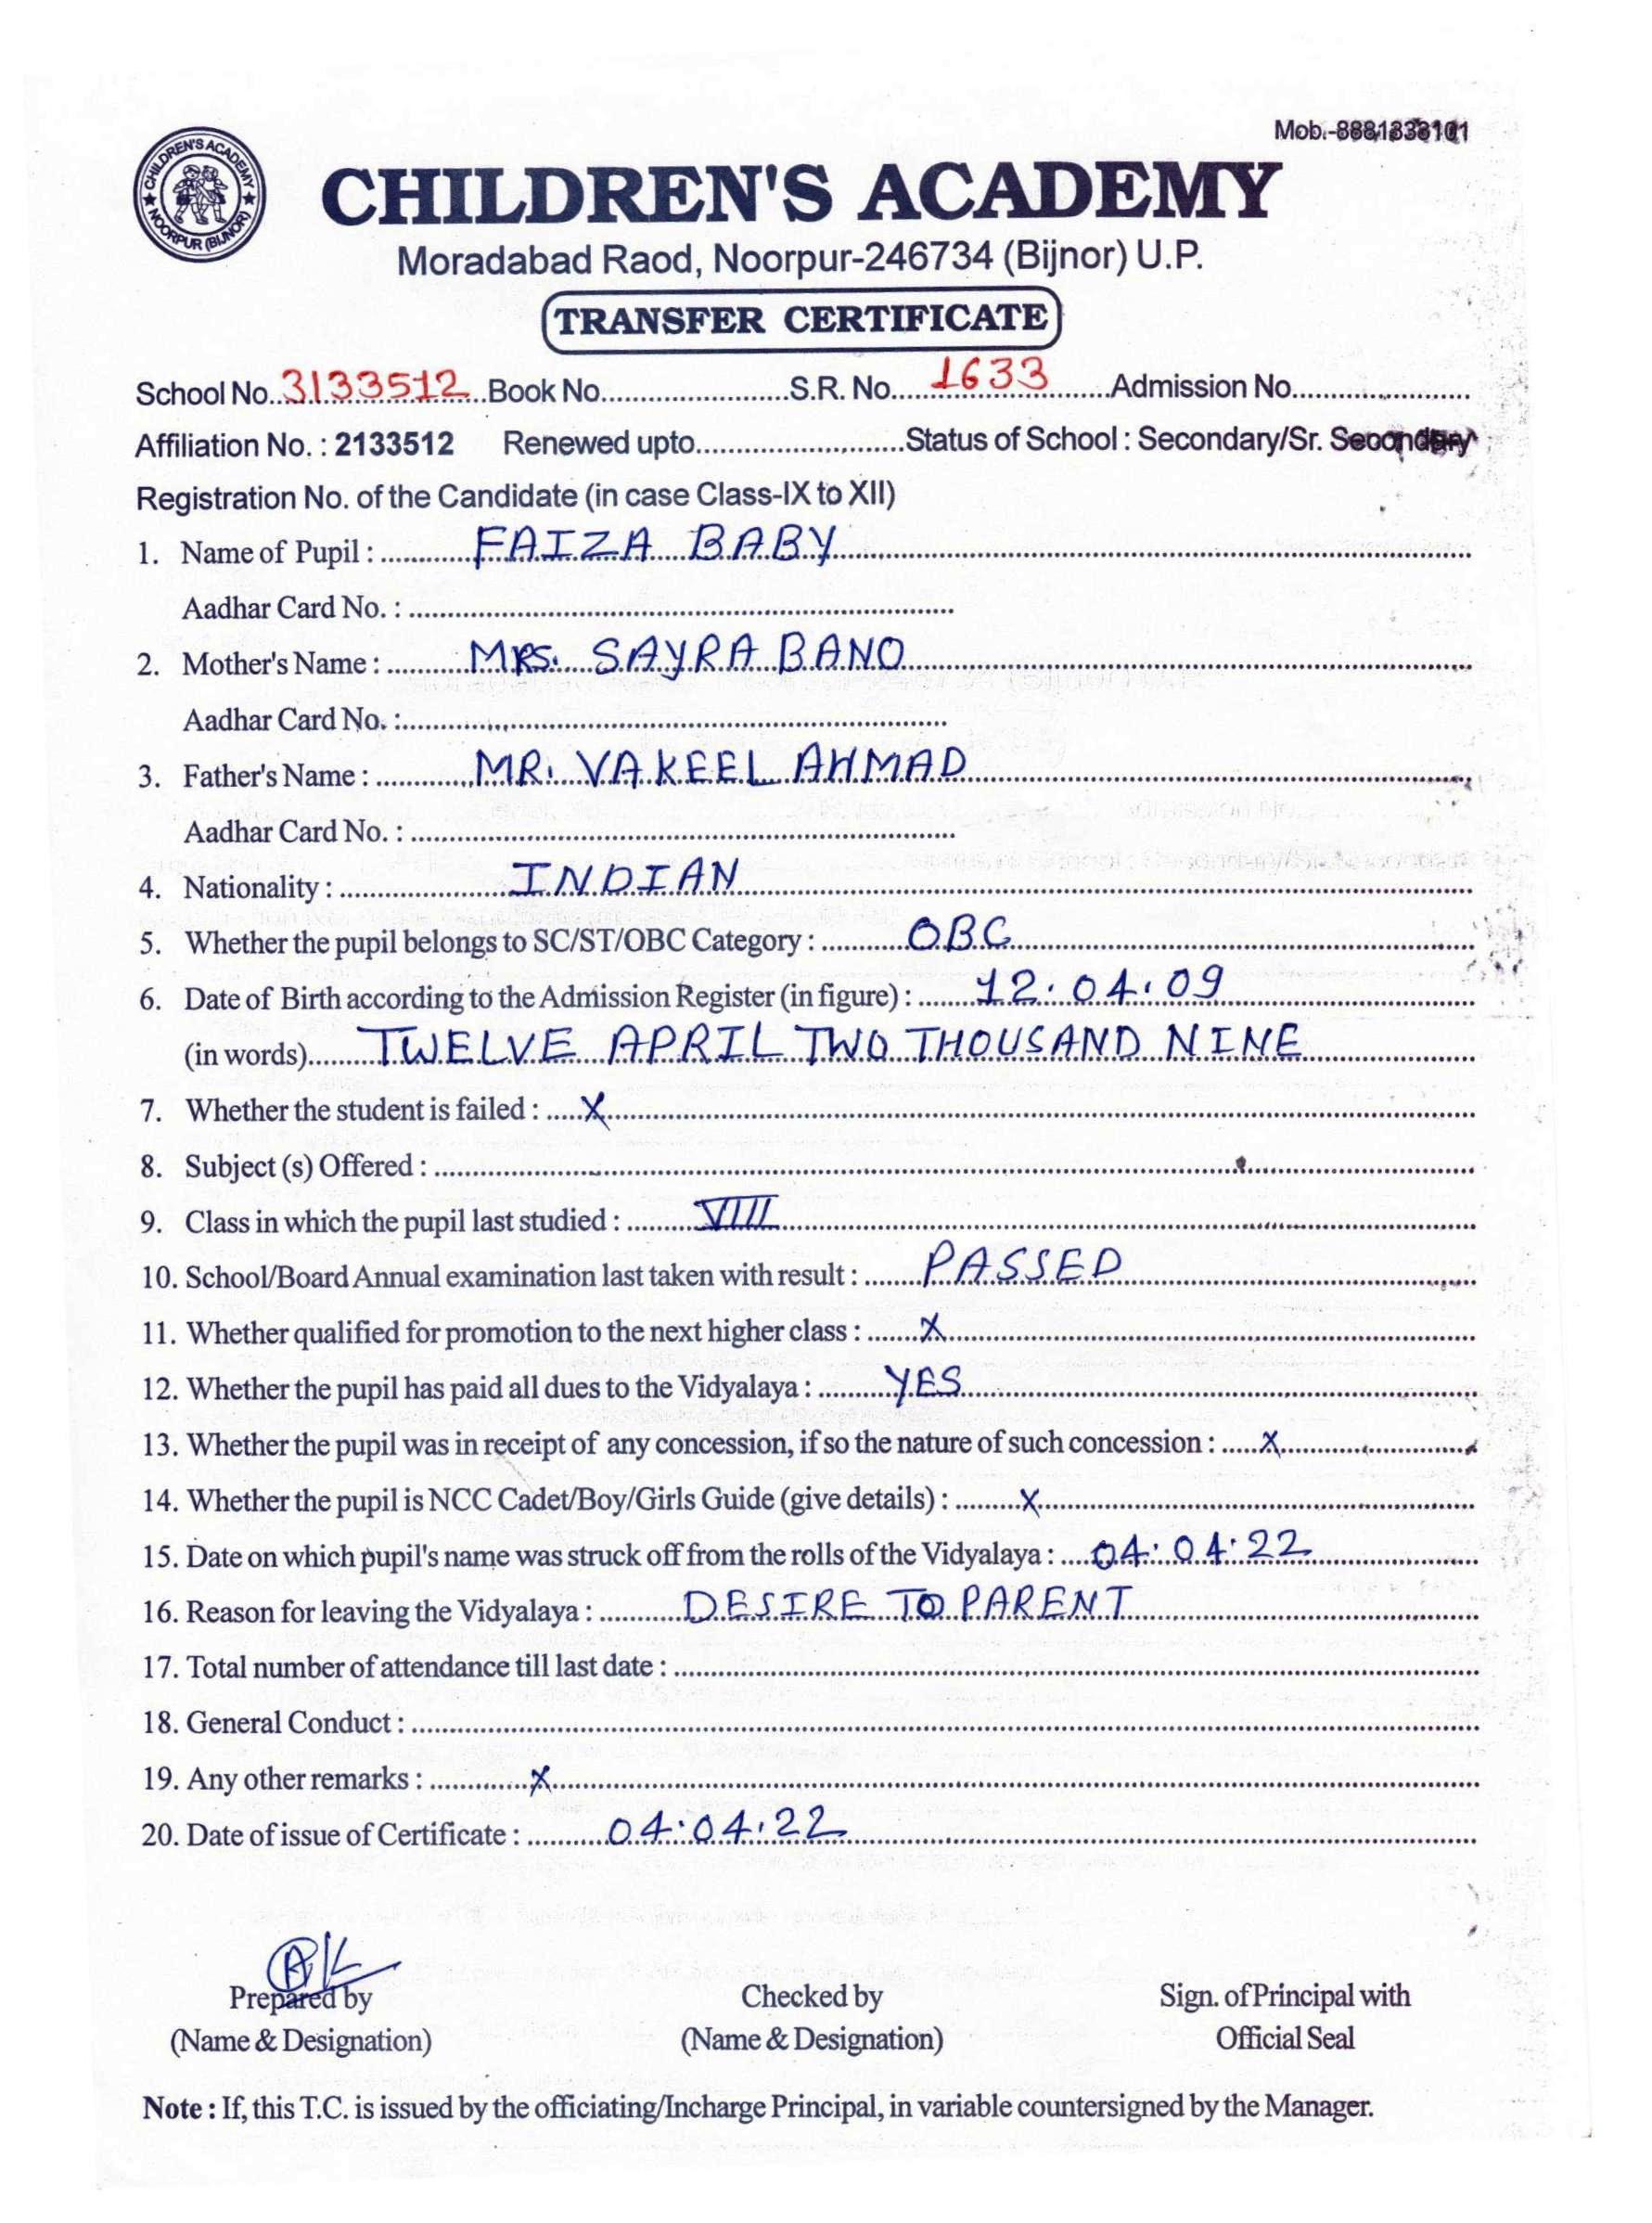 Mob.-8881838101
CHILDREN'S ACADEMY
NOORPUR (BIJNOR)
CHILDREN'S ACADEMY
Moradabad Raod, Noorpur-246734 (Bijnor) U.P.
TRANSFER CERTIFICATE
School No. 3133512 Book No. S.R. No. 1633 Admission No.
Affiliation No. : 2133512 Renewed upto Status of School : Secondary/Sr. Secondary
Registration No. of the Candidate (in case Class-IX to XII)
1. Name of Pupil : FAIZA BABY
Aadhar Card No. :
2. Mother's Name : MRS. SAYRA BANO
Aadhar Card No. :
3. Father's Name : MR. VAKEEL AHMAD
Aadhar Card No. :
4. Nationality : INDIAN
5. Whether the pupil belongs to SC/ST/OBC Category : OBC
6. Date of Birth according to the Admission Register (in figure) : 12.04.09
(in words) TWELVE APRIL TWO THOUSAND NINE
7. Whether the student is failed : X
8. Subject (s) Offered :
9. Class in which the pupil last studied : VIII
10. School/Board Annual examination last taken with result : PASSED
11. Whether qualified for promotion to the next higher class : X
12. Whether the pupil has paid all dues to the Vidyalaya : YES
13. Whether the pupil was in receipt of any concession, if so the nature of such concession : X
14. Whether the pupil is NCC Cadet/Boy/Girls Guide (give details) : X
15. Date on which pupil's name was struck off from the rolls of the Vidyalaya : 04.04.22
16. Reason for leaving the Vidyalaya : DESIRE TO PARENT
17. Total number of attendance till last date :
18. General Conduct :
19. Any other remarks : X
20. Date of issue of Certificate : 04.04.22
Prepared by Checked by Sign. of Principal with
(Name & Designation) (Name & Designation) Official Seal
Note : If, this T.C. is issued by the officiating/Incharge Principal, in variable countersigned by the Manager.